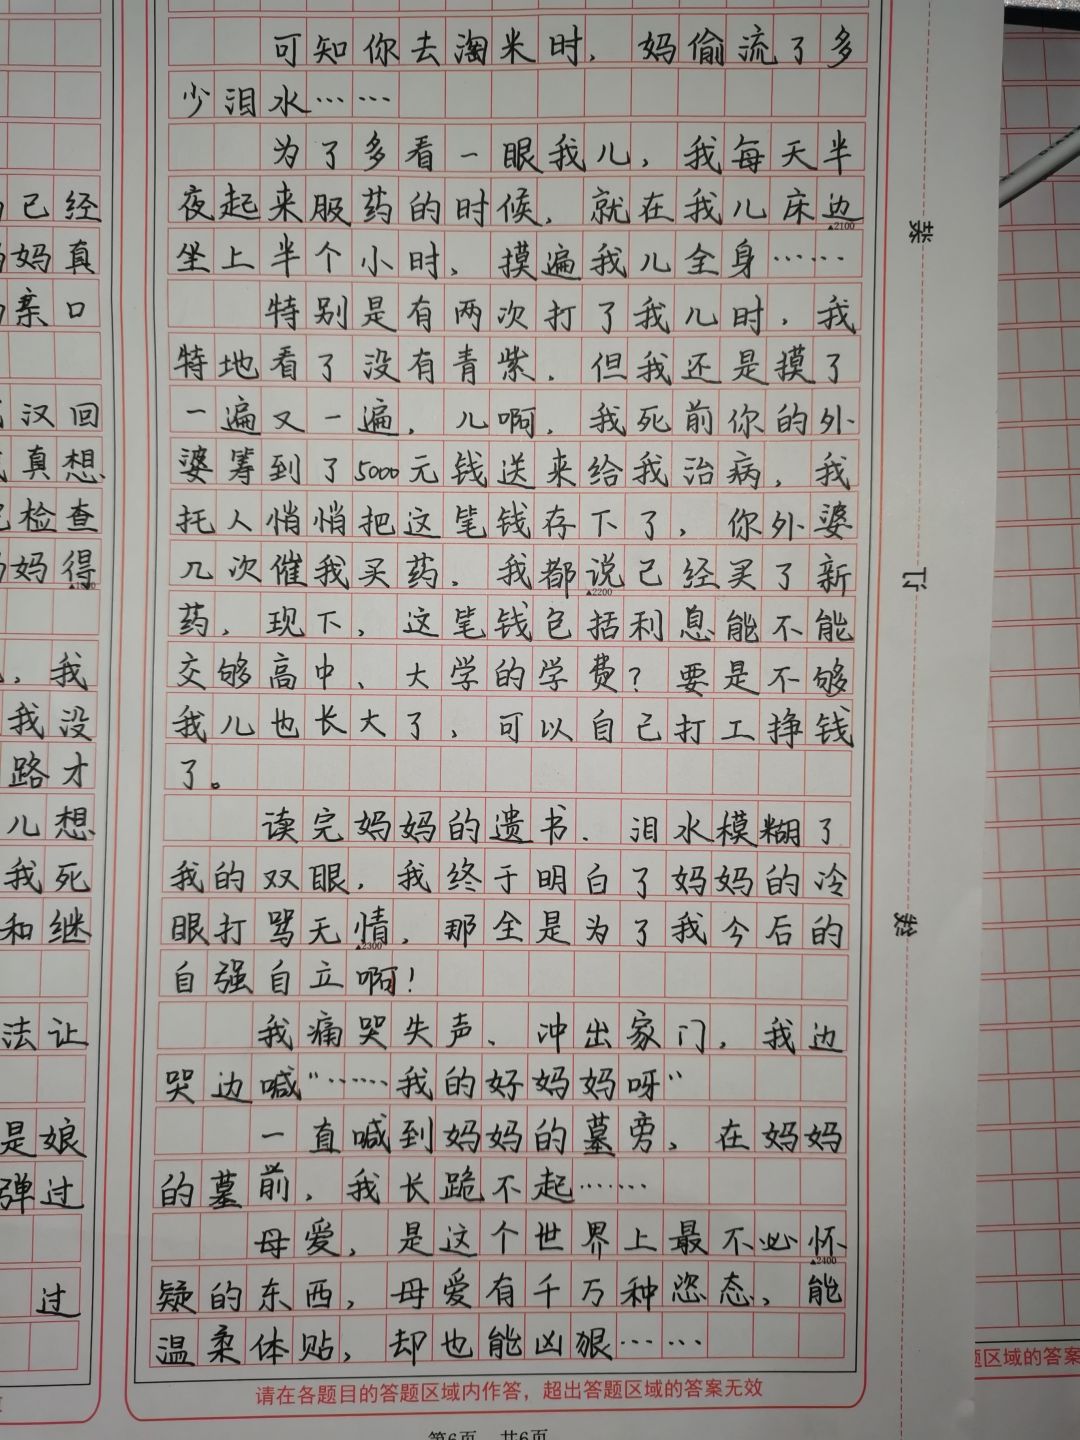 可知你去淘米时，妈偷流了多
少泪水……
为了多看一眼我儿，我每天半
夜起来服药的时候，就在我儿床边
▲2100
坐上半个小时，摸遍我儿全身……
特别是有两次打了我儿时，我
特地看了没有青紫．但我还是摸了
一遍又一遍，儿啊，我死前你的外
婆筹到了5000元钱送来给我治病，我
托人悄悄把这笔钱存下了，你外婆
几次催我买药，我都说己经买了新
▲2200
药，现下，这笔钱包括利息能不能
交够高中、大学的学费？要是不够
我儿也长大了，可以自己打工挣钱
了。
读完妈妈的遗书．泪水模糊了
我的双眼，我终于明白了妈妈的冷
眼打骂无情，那全是为了我今后的
▲2300
自强自立啊！
我痛哭失声、冲出家门，我边
哭边喊“……我的好妈妈呀“
一直喊到妈妈的墓旁，在妈妈
的墓前，我长跪不起……
母爱，是这个世界上最不必怀
▲2400
疑的东西，母爱有千万种恣态，能
温柔体贴，却也能凶狠……
请在各题目的答题区域内作答，超出答题区域的答案无效
第6页 共6页
己经
妈真
亲口
汉回
真想
检查
妈得
，我
我没
路才
儿想
我死
和继
法让
是娘
弹过
过
装
订
题区域的答案